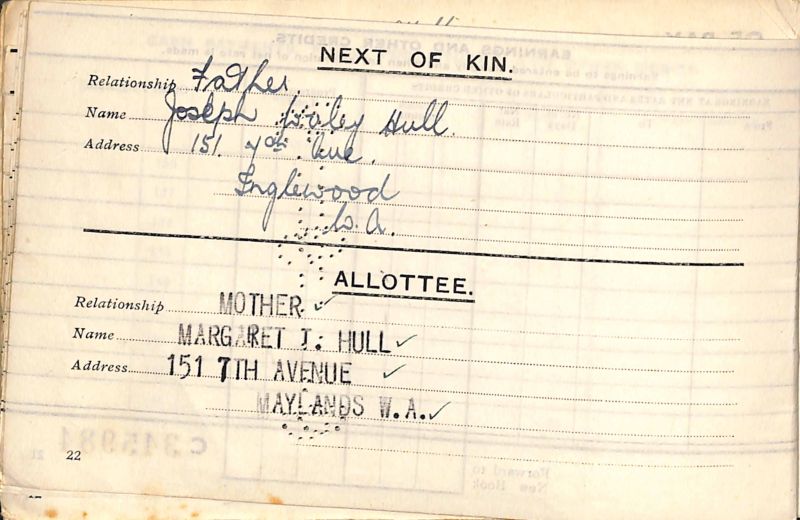 NEXT OF KIN.
Relationship Father.
Name Joseph Wiley Hull.
Address 151. 7th Ave.
Inglewood
W.A.
ALLOTTEE.
Relationship MOTHER
Name MARGARET J. HULL
Address 151 7TH AVENUE
MAYLANDS W.A.
22